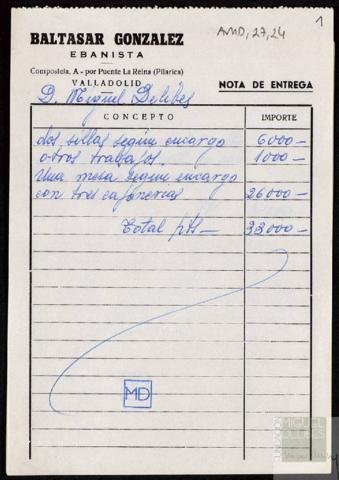 1
AMD, 27, 24
BALTASAR GONZALEZ
EBANISTA
Compostela, A - por Puente La Reina (Pilarica)
VALLADOLID
NOTA DE ENTREGA
D. Miguel Delibes
CONCEPTO IMPORTE
dos sillas según encargo 6000—
otros trabajos. 1000—
Una mesa según encargo
con tres cajoneras 26000—
Total pts— 33000—
MD